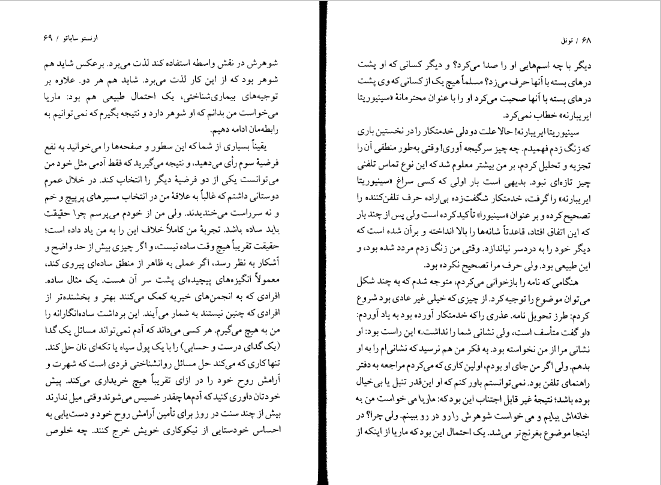 ۶۸ / تونل
دیگر با چه اسم‌هایی او را صدا می‌کرد؟ و دیگر کسانی که او پشت
درهای بسته با آنها حرف می‌زد؟ مسلماً هیچ یک از کسانی که وی پشت
درهای بسته با آنها صحبت می‌کرد او را با عنوان محترمانهٔ «سینیوریتا
ایریبارنه» خطاب نمی‌کرد.
سینیوریتا ایریبارنه! حالا علت دودلی خدمتکار را در نخستین باری
که زنگ زدم فهمیدم. چه چیز سرگیجه آوری! وقتی به‌طور منطقی آن را
تجزیه و تحلیل کردم، بر من بیشتر معلوم شد که این نوع تماس تلفنی
چیز تازه‌ای نبود. بدیهی است بار اولی که کسی سراغ «سینیوریتا
ایریبارنه» را گرفت، خدمتکار شگفت‌زده بی‌اراده حرف تلفن‌کننده را
تصحیح کرده و بر عنوان «سینیورا» تأکید کرده است ولی پس از چند بار
که این اتفاق افتاد، قاعدتاً شانه‌ها را بالا انداخته و بر آن شده است که
دیگر خود را به دردسر نیاندازد. وقتی من زنگ زدم مردد شده بود، و
این طبیعی بود. ولی حرف مرا تصحیح نکرده بود.
هنگامی که نامه را بازخوانی می‌کردم، متوجه شدم که به چند شکل
می‌توان موضوع را توجیه کرد. از چیزی که خیلی غیر عادی بود شروع
کردم: طرز تحویل نامه. عذری را که خدمتکار آورده بود به یاد آوردم:
«او گفت متأسف است، ولی نشانی شما را نداشت.» این راست بود: او
نشانی مرا از من نخواسته بود. به فکر من هم نرسید که نشانی‌ام را به او
بدهم. ولی اگر من جای او بودم، اولین کاری که می‌کردم مراجعه به دفتر
راهنمای تلفن بود. نمی‌توانستم باور کنم که او این‌قدر تنبل یا بی‌خیال
بوده باشد؛ نتیجهٔ غیر قابل اجتناب این بود که: ماریا می‌خواست من به
خانه‌اش بیایم و می‌خواست شوهرش را رو در رو ببینم. ولی چرا؟ در
اینجا موضوع بغرنج‌تر می‌شد. یک احتمال این بود که ماریا از اینکه از
ارنستو ساباتو / ۶۹
شوهرش در نقش واسطه استفاده کند لذت می‌برد. برعکس شاید هم
شوهر بود که از این کار لذت می‌برد. شاید هم هر دو. علاوه بر
توجیه‌های بیماری‌شناختی، یک احتمال طبیعی هم بود: ماریا
می‌خواست من بدانم که او شوهر دارد و نتیجه بگیرم که نمی‌توانیم به
رابطه‌مان ادامه دهیم.
یقیناً بسیاری از شما که این سطور و صفحه‌ها را می‌خوانید به نفع
فرضیهٔ سوم رأی می‌دهید، و نتیجه می‌گیرید که فقط آدمی مثل خود من
می‌توانست یکی از دو فرضیهٔ دیگر را انتخاب کند. در خلال عمرم
دوستانی داشتم که غالباً به علاقهٔ من در انتخاب مسیرهای پرپیچ و خم
و نه سرراست می‌خندیدند. ولی من از خودم می‌پرسم چرا حقیقت
باید ساده باشد. تجربهٔ من کاملاً خلاف این را به من یاد داده است؛
حقیقت تقریباً هیچ وقت ساده نیست، و اگر چیزی بیش از حد واضح و
آشکار به نظر رسد، اگر عملی به ظاهر از منطق ساده‌ای پیروی کند،
معمولاً انگیزه‌های پیچیده‌ای پشت سر آن هست. یک مثال ساده.
افرادی که به انجمن‌های خیریه کمک می‌کنند بهتر و بخشنده‌تر از
افرادی که چنین نیستند به شمار می‌آیند. این برداشت ساده‌انگارانه را
من به هیچ می‌گیرم. هر کسی می‌داند که آدم نمی‌تواند مسائل یک گدا
(یک گدای درست و حسابی) را با یک پول سیاه یا تکه‌ای نان حل کند.
تنها کاری که می‌کند حل مسائل روانشناختی فردی است که شهرت و
آرامش روح خود را در ازای تقریباً هیچ خریداری می‌کند. پیش
خودتان داوری کنید که آدم‌ها چقدر خسیس می‌شوند وقتی میل ندارند
بیش از چند سنت در روز برای تأمین آرامش روح خود و دست‌یابی به
احساس خودستایی از نیکوکاری خویش خرج کنند. چه خلوص